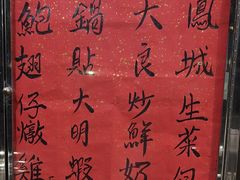 鳳城生菜包
大良炒鮮奶
鍋貼大明蝦
鮑翅仔燉雞